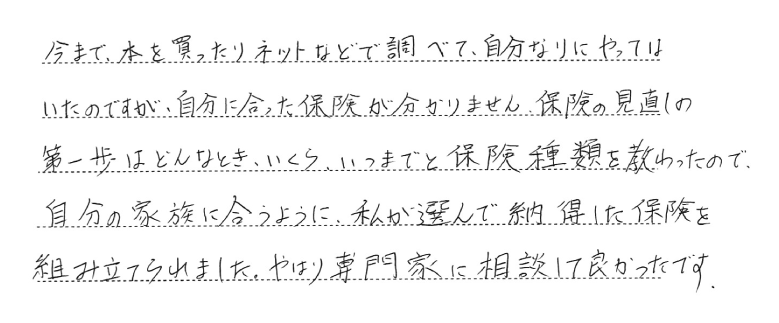 今まで、本を買ったりネットなどで調べて、自分なりにやっては
いたのですが、自分に合った保険が分かりません。保険の見直しの
第一歩はどんなとき、いくら、いつまでと保険種類を教わったので、
自分の家族に合うように、私が選んで納得した保険を
組み立てられました。やはり専門家に相談して良かったです。